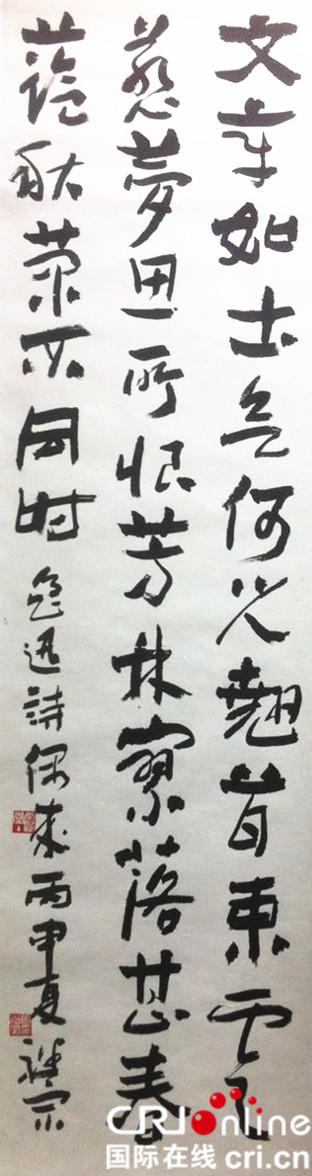 文章如土欲何之翹首東雲
惹夢思所恨芳林寥落甚春
蘭秋菊不同时
魯迅詩偶成丙申夏
CRI Online
国际在线 cri.cn